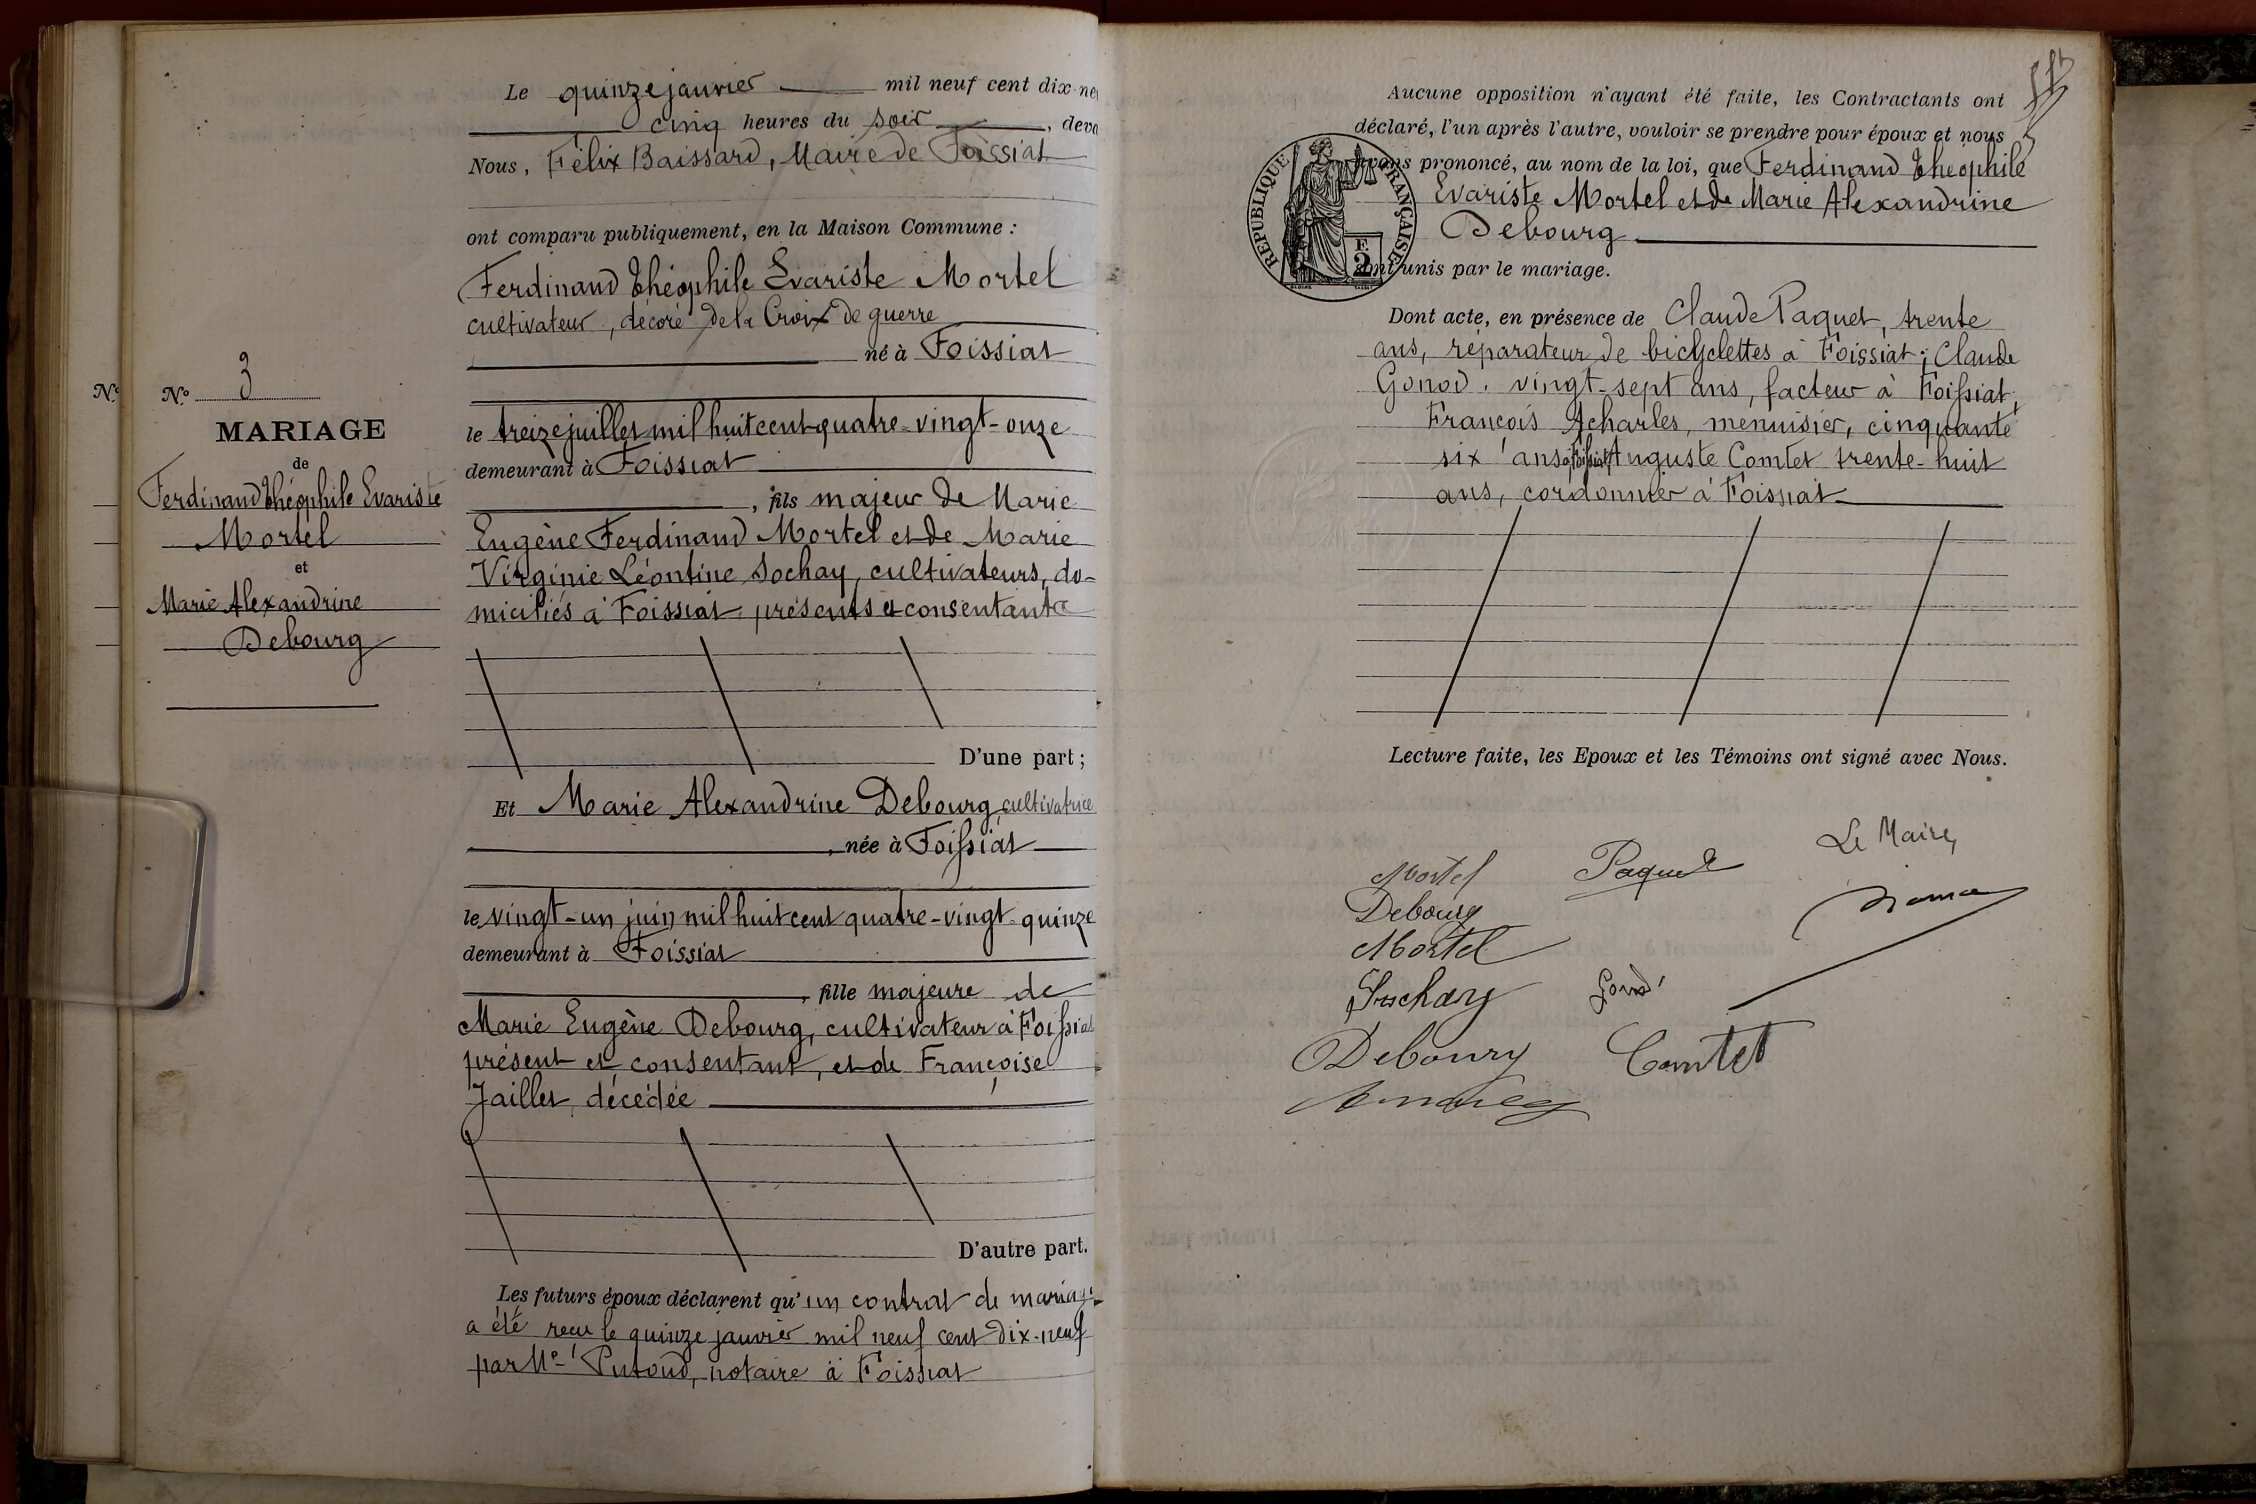 Le quinze janvier mil neuf cent dix-ne
cinq heures du soir, deva
Nous, Félix Baissard, Maire de Foissiat
ont comparu publiquement, en la Maison Commune :
Ferdinand Théophile Evariste Mortel
cultivateur, décoré de la Croix de guerre
né à Foissiat
le treize juillet mil huit cent quatre-vingt-onze
demeurant à Foissiat
, fils majeur de Marie
Eugène Ferdinand Mortel et de Marie
Virginie Léontine Sochay, cultivateurs, do-
miciliés à Foissiat présents et consentants
D'une part ;
Et Marie Alexandrine Debourg, cultivatrice
, née à Foissiat
le vingt-un juin mil huit cent quatre-vingt-quinze
demeurant à Foissiat
, fille majeure de
Marie Eugène Debourg, cultivateur à Foissiat
présent et consentant, et de Françoise
Jaillet, décédée
D'autre part.
Les futurs époux déclarent qu'un contrat de mariage
a été reçu le quinze janvier mil neuf cent dix-neuf
par Me Putoud, notaire à Foissiat
N°
N° 3
MARIAGE
de
Ferdinand Théophile Evariste
Mortel
et
Marie Alexandrine
Debourg
Aucune opposition n'ayant été faite, les Contractants ont
déclaré, l'un après l'autre, vouloir se prendre pour époux et nous
avons prononcé, au nom de la loi, que Ferdinand Théophile
Evariste Mortel et de Marie Alexandrine
Debourg
sont unis par le mariage.
RÉPUBLIQUE FRANÇAISE
F.
2
Dont acte, en présence de Claude Paquet, trente
ans, réparateur de bicyclettes à Foissiat ; Claude
Gonod, vingt-sept ans, facteur à Foissiat,
François Acharles, menuisier, cinquante
six ans à Foissiat, Auguste Comtet trente-huit
ans, cordonnier à Foissiat
Lecture faite, les Epoux et les Témoins ont signé avec Nous.
Le Maire,
Mortel Paquet
Debourg
Mortel
Sochay Gonod
Debourg Comtet